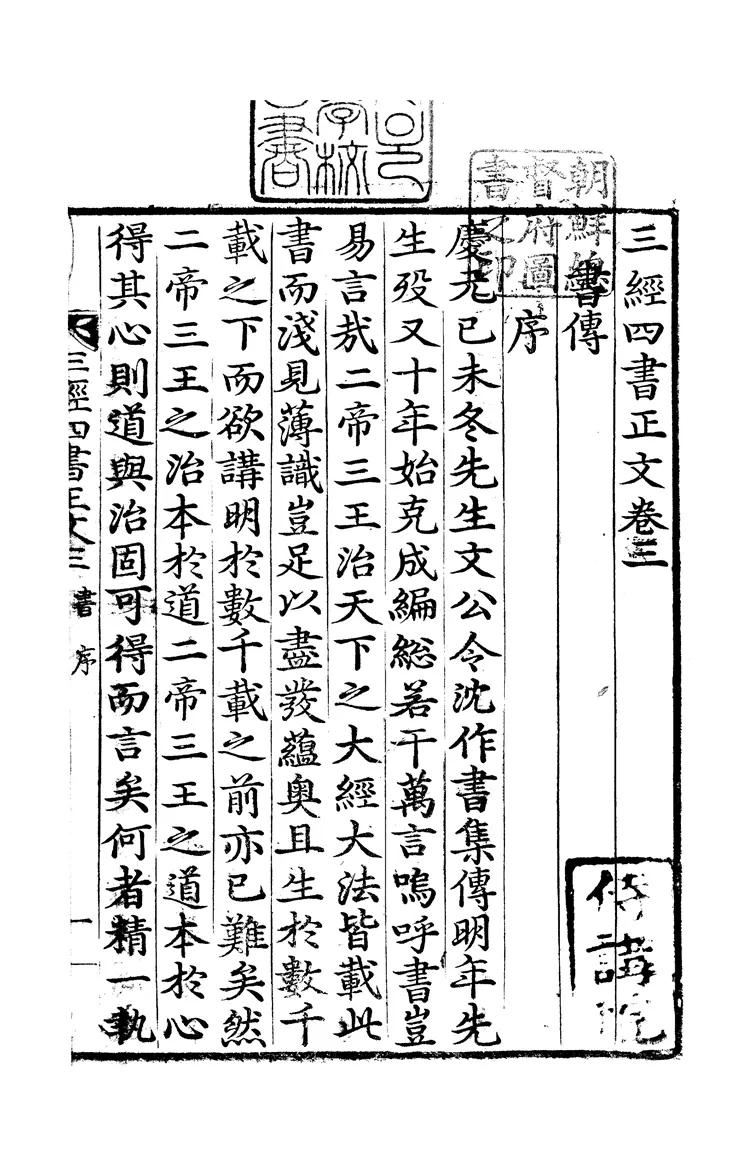 三經四書正文卷三
書傳
序
慶元己未冬先生文公令沈作書集傳明年先
生歿又十年始克成編総若干萬言嗚呼書豈
易言㢤二帝三王治天下之大經大法皆載此
書而淺見薄識豈足以盡發蘊奧且生於數千
載之下而欲講明於數千載之前亦已難矣然
二帝三王之治本於道二帝三王之道本於心
得其心則道與治固可得而言矣何者精一執
三經四書正文三 書 序 一
朝鮮總
督府圖
書之印
侍講院
學校
書